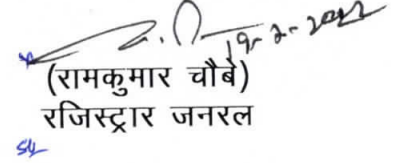 19-2-2022
(रामकुमार चौबे)
रजिस्ट्रार जनरल